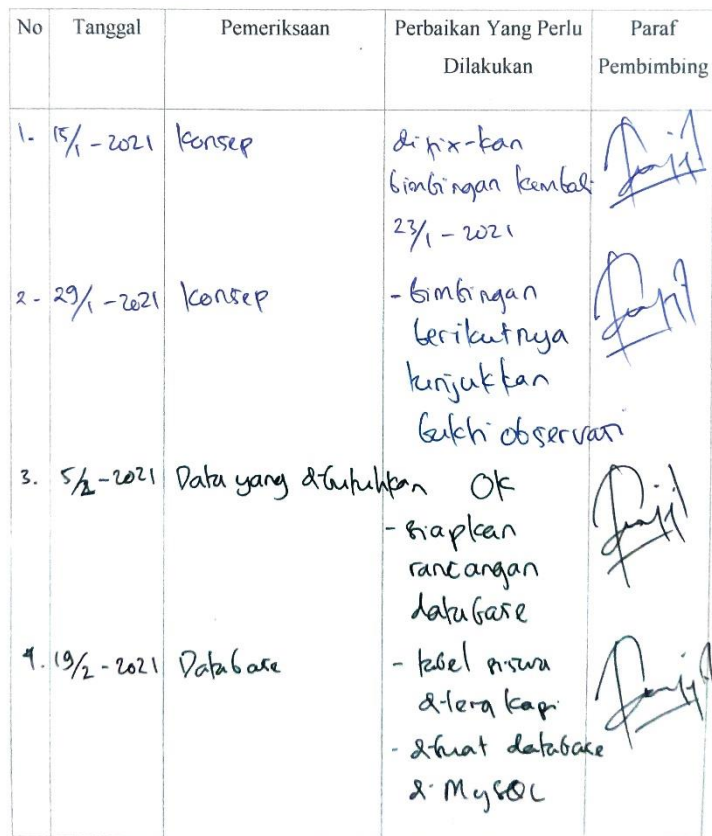 No Tanggal Pemeriksaan Perbaikan Yang Perlu Dilakukan Paraf Pembimbing
1. 15/1 - 2021 Konsep di fix-kan
bimbingan kembali
23/1 - 2021
2 - 29/1 - 2021 Konsep - bimbingan
berikutnya
tunjukkan
bukti observasi
3. 5/2 - 2021 Data yang dibutuhkan OK
- siapkan
rancangan
database
4. 19/2 - 2021 Database - tabel siswa
dilengkapi
- dibuat database
di MySQL